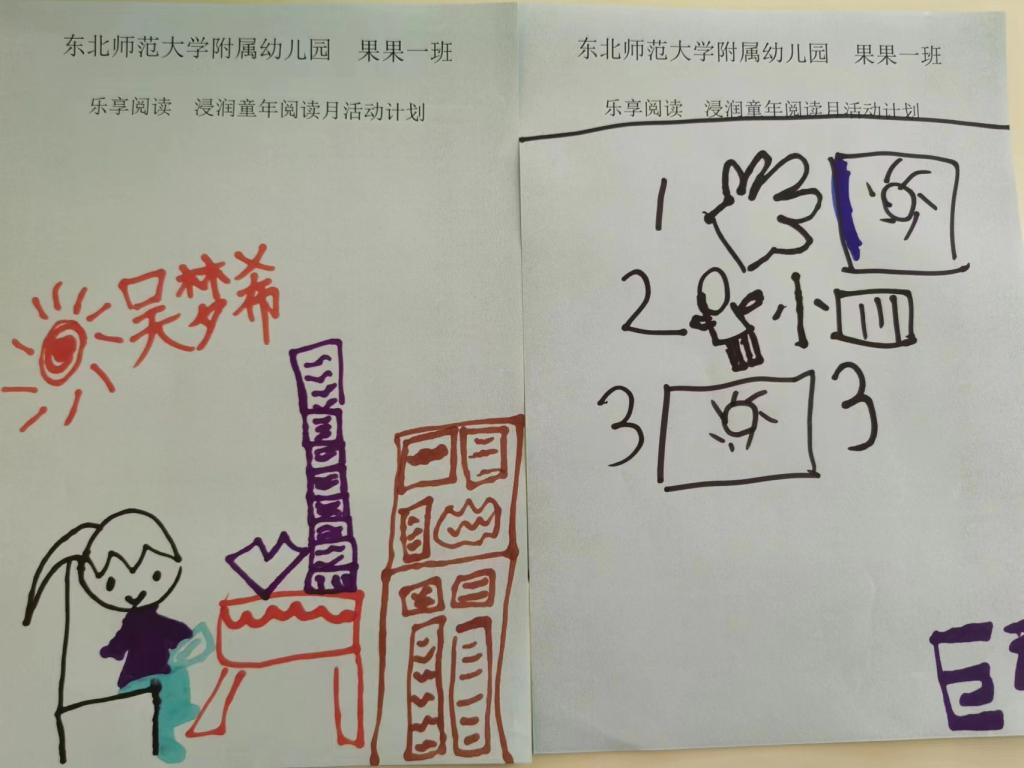 东北师范大学附属幼儿园 果果一班
乐享阅读 浸润童年阅读月活动计划
吴梦希
东北师范大学附属幼儿园 果果一班
乐享阅读 浸润童年阅读月活动计划
1
2 小
3 3